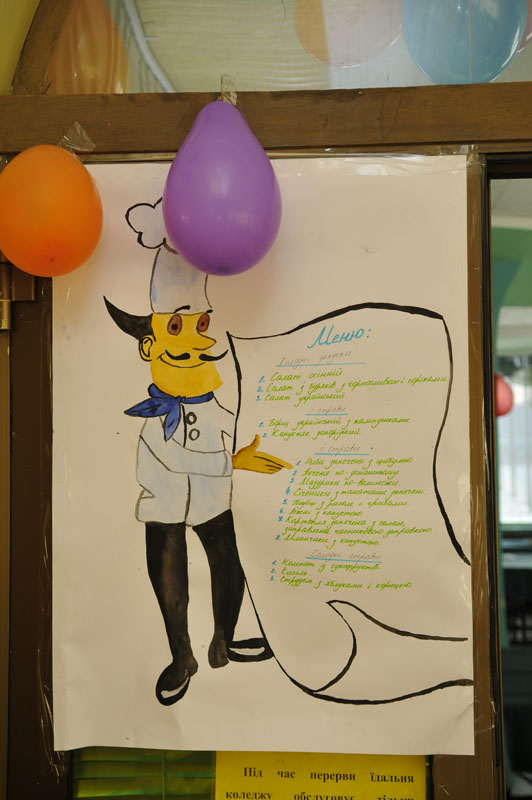 Меню:
Холодні закуски:
1. Салат осінній.
2. Салат з буряків з чорносливом і горіхами
3. Салат український.
І страви
1. Борщ український з пампушками.
2. Капусняк запорізький.
ІІ страви
1. Риба запечена з цибулею.
2. Печеня по-домашньому.
3. Мазурики по-волинськи.
4. Січеники з томатами запечені.
5. з рисом і грибами.
6. з капустою.
7. Картопля запечена з салом,
заправлена часниковою заправкою.
8. Млинчики з капустою.
Солодкі страви
1. Компот із сухофруктів.
2. Кисіль
3. Струдель з яблуками і корицею.
Під час перерви їдальня
коледжу обслуговує тільки